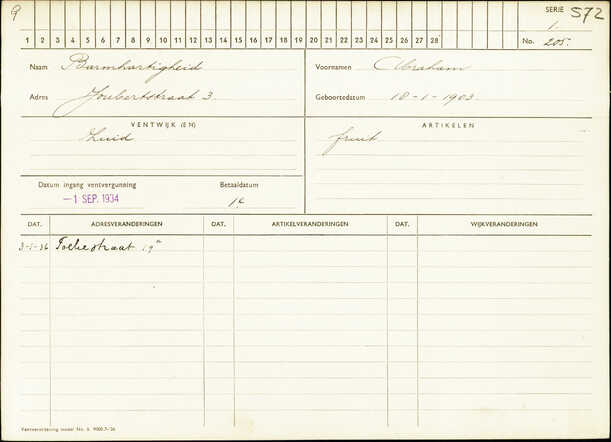 9 SERIE S72
1.
1 2 3 4 5 6 7 8 9 10 11 12 13 14 15 16 17 18 19 20 21 22 23 24 25 26 27 28 No. 205.
Naam Barmhartigheid Voornamen Abraham
Adres Joubertstraat 3 Geboortedatum 10-1-1903
VENTWIJK (EN) ARTIKELEN
Zuid fruit
Datum ingang ventvergunning Betaaldatum
-1 SEP. 1934 1e
DAT. ADRESVERANDERINGEN DAT. ARTIKELVERANDERINGEN DAT. WIJKVERANDERINGEN
3-1-36
Ventverordening model No. 6 9000.7-'36